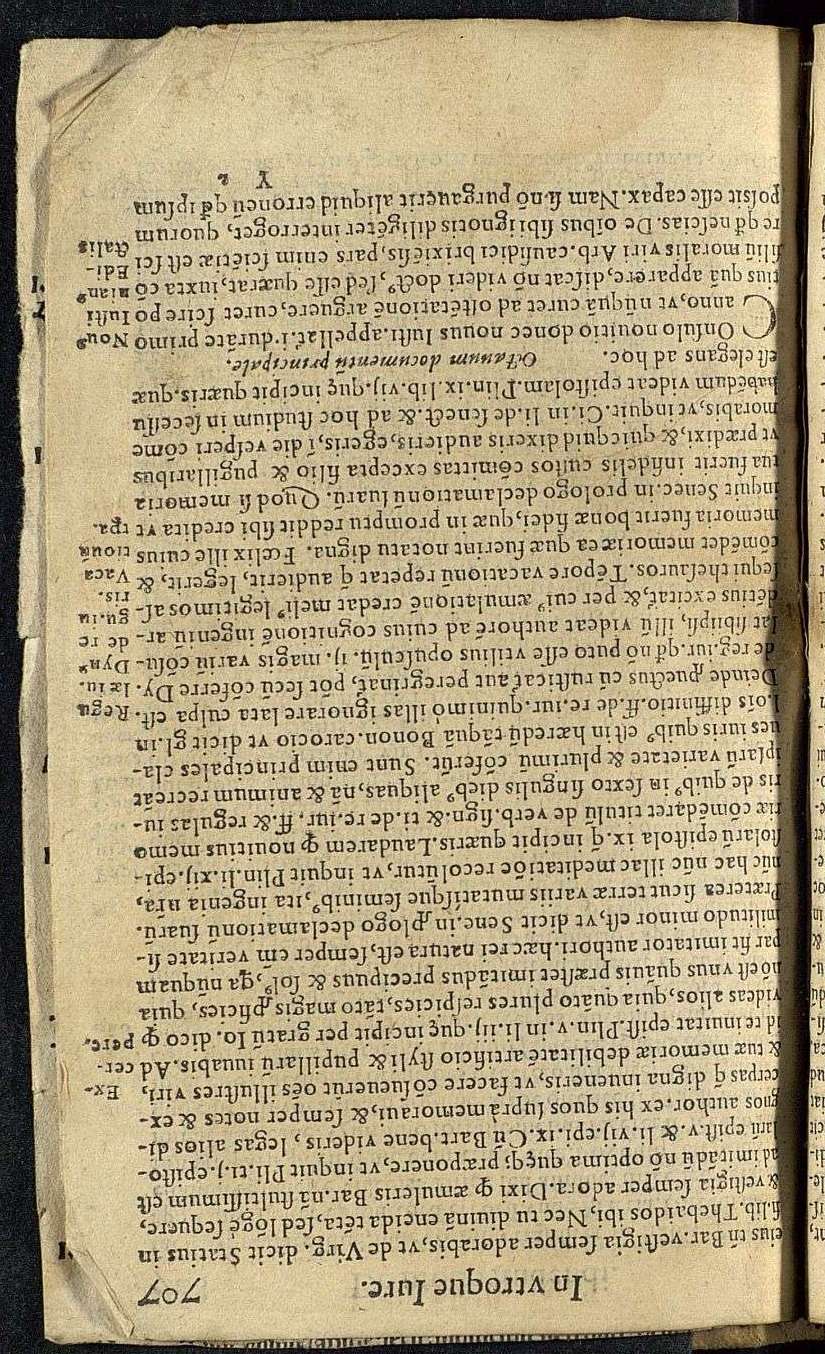 In vtroque Iure. 707
eius tñ Bar. vestigia semper adorabis, vt de Virg. dicit Statius in
fi. lib. Thebaidos ibi, Nec tu diuinã eneida tẽta, sed lõgè sequere,
& vestigia semper adora. Dixi ꝙ æmuleris Bar. nã stultissimum est
ad imitãdũ nõ optima quęq; præponere, vt inquit Pli. ti. j. episto-
larũ epist. v. & li. vij. epi. ix. Cũ Bart. bene videris, legas alios di-
gnos author. ex his quos suprà memoraui, & semper notes & ex-
cerpas q̃ digna inueneris, vt facere cõsueuerũt oẽs illustres viri, Ex-
& tuæ memoriæ debilitatẽ artificio styli & pupillarũ iuuabis. Ad cer-
id te inuitat epist. Plin. v. in li. iij. quę incipit per gratũ Io. dico ꝙ pere.
videas alios, quia quãto plures respicies, tãto magis ꝓficies, quia
nõ est vnus quãuis præstet imitãdus precipuus & solꝰ, q̃a nũquam
par fit imitator authori. hæc rei natura est, semper em̃ veritate si-
militudo minor est, vt dicit Sene. in ꝓlogo declamationũ suarũ.
Præterea sicut terræ variis mutatísque seminibꝰ, ita ingenia nr̃a,
nũc hac nũc illac meditatiõe recolũtur, vt inquit Plin. li. xij. epi-
stolarũ epistola ix. q̃ incipit quæris. Laudarem ꝙ nouitius memo
riæ cõmẽdaret titulũ de verb. sign. & ti. de re. iur. ff. & regulas iu-
ris de quibꝰ in sexto singulis diebꝰ aliquas, nã & animum recreat
ipsarũ varietate & plurimũ cõferũt. Sunt enim principales cla-
ues iuris quibꝰ est in hæredũ tãquã Bonon. carocio vt dicit gl. in
l. ois diffinitio. ff. de re. iur. quinimó illas ignorare lata culpa est. Regu
Deinde ꝓuectus cũ rusticat̃ aut peregrinat̃, põt secũ cõferre Dy. læ iu.
de reg. iur. qđ nõ puto esse vtilius opusculũ. ij. magis variũ cõsu- Dynꝰ
lat sibiipsi, illũ videat authorẽ ad cuius cognitionẽ ingeniũ ar- de re
dẽtius excitat̃, & per cuiꝰ æmulationẽ credat meliꝰ legitimos as- gu. iu
ris.
sequi thesauros. Tẽpore vacationũ repetat q̃ audierit, legerit, & Vaca
cõmẽdet memoriæ ea quæ fuerint notatu digna. Fœlix ille cuius tionũ
memoria fuerit bonæ fidei, quæ in promptu reddit sibi credita vt tp̃a.
inquit Senec. in prologo declamationũ suarũ. Quod si memoria
tua fuerit infidelis custos cõmitas excepta filo & pugillaribus
vt prædixi, & quicquid dixeris audieris, egeris, ĩ die vesperi cõme
morabis, vt inquit. Ci. in li. de senect. & ad hoc studium in secessu
habẽdum videat epistolam. Plin. ix. lib. vij. quę incipit quæris. quæ
est elegans ad hoc. Octauum documentum principale.
COnsulo nouitio donec nouus Iusti. appellat̃. i. durãte primo Nouꝰ
anno, vt nũquã curet ad ostẽtationẽ arguere, curet scire po Iusti
tius quã apparere, discat nõ videri doctꝰ, sed esse quærat, iuxta cõ nianꝰ
siliũ moralis viri Arb. causidici brixiẽsis, pars enim sciẽtiæ est sci Edi-
re qđ nescias. De oibus sibi ignotis diligẽter interroget, quorum ctalis
possit esse capax. Nam si nõ purgauerit aliquid erroneũ qđ ipsum
Y 2